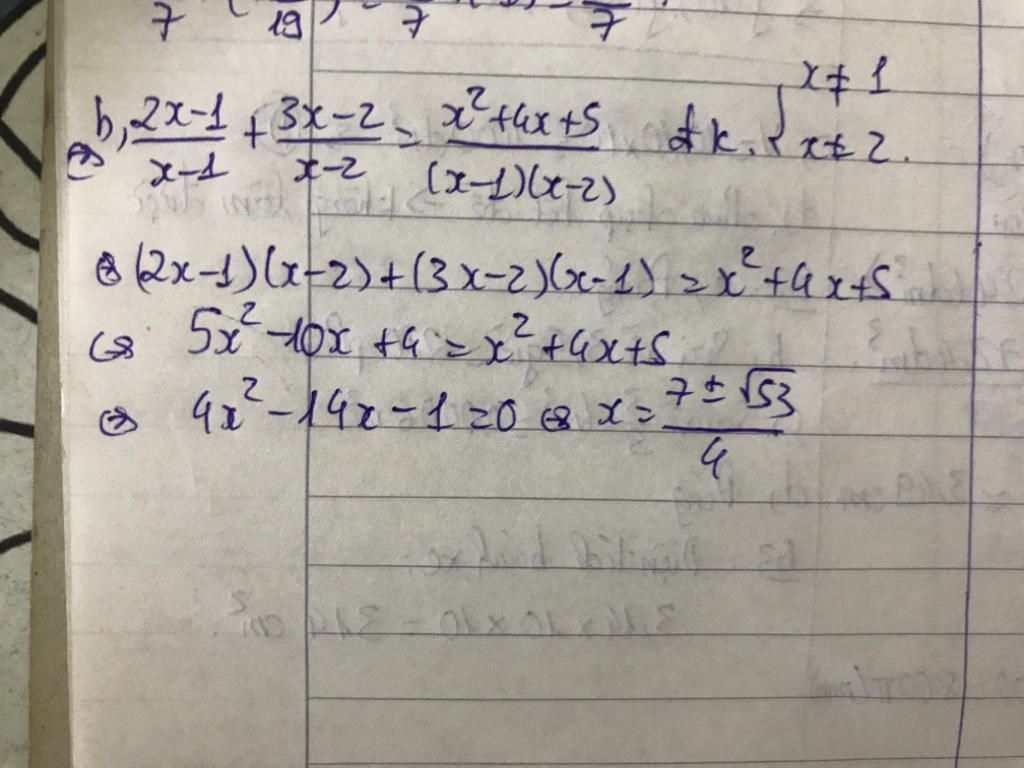 7 19 7 7
b, \frac{2x-1}{x-1} + \frac{3x-2}{x-2} = \frac{x^2+4x+5}{(x-1)(x-2)} đk: { x ≠ 1
x ≠ 2.
⇔ (2x-1)(x-2)+(3x-2)(x-1) = x^2+4x+5
⇔ 5x^2-10x+4 = x^2+4x+5
⇔ 4x^2-14x-1=0 ⇔ x = \frac{7 ± √53}{4}